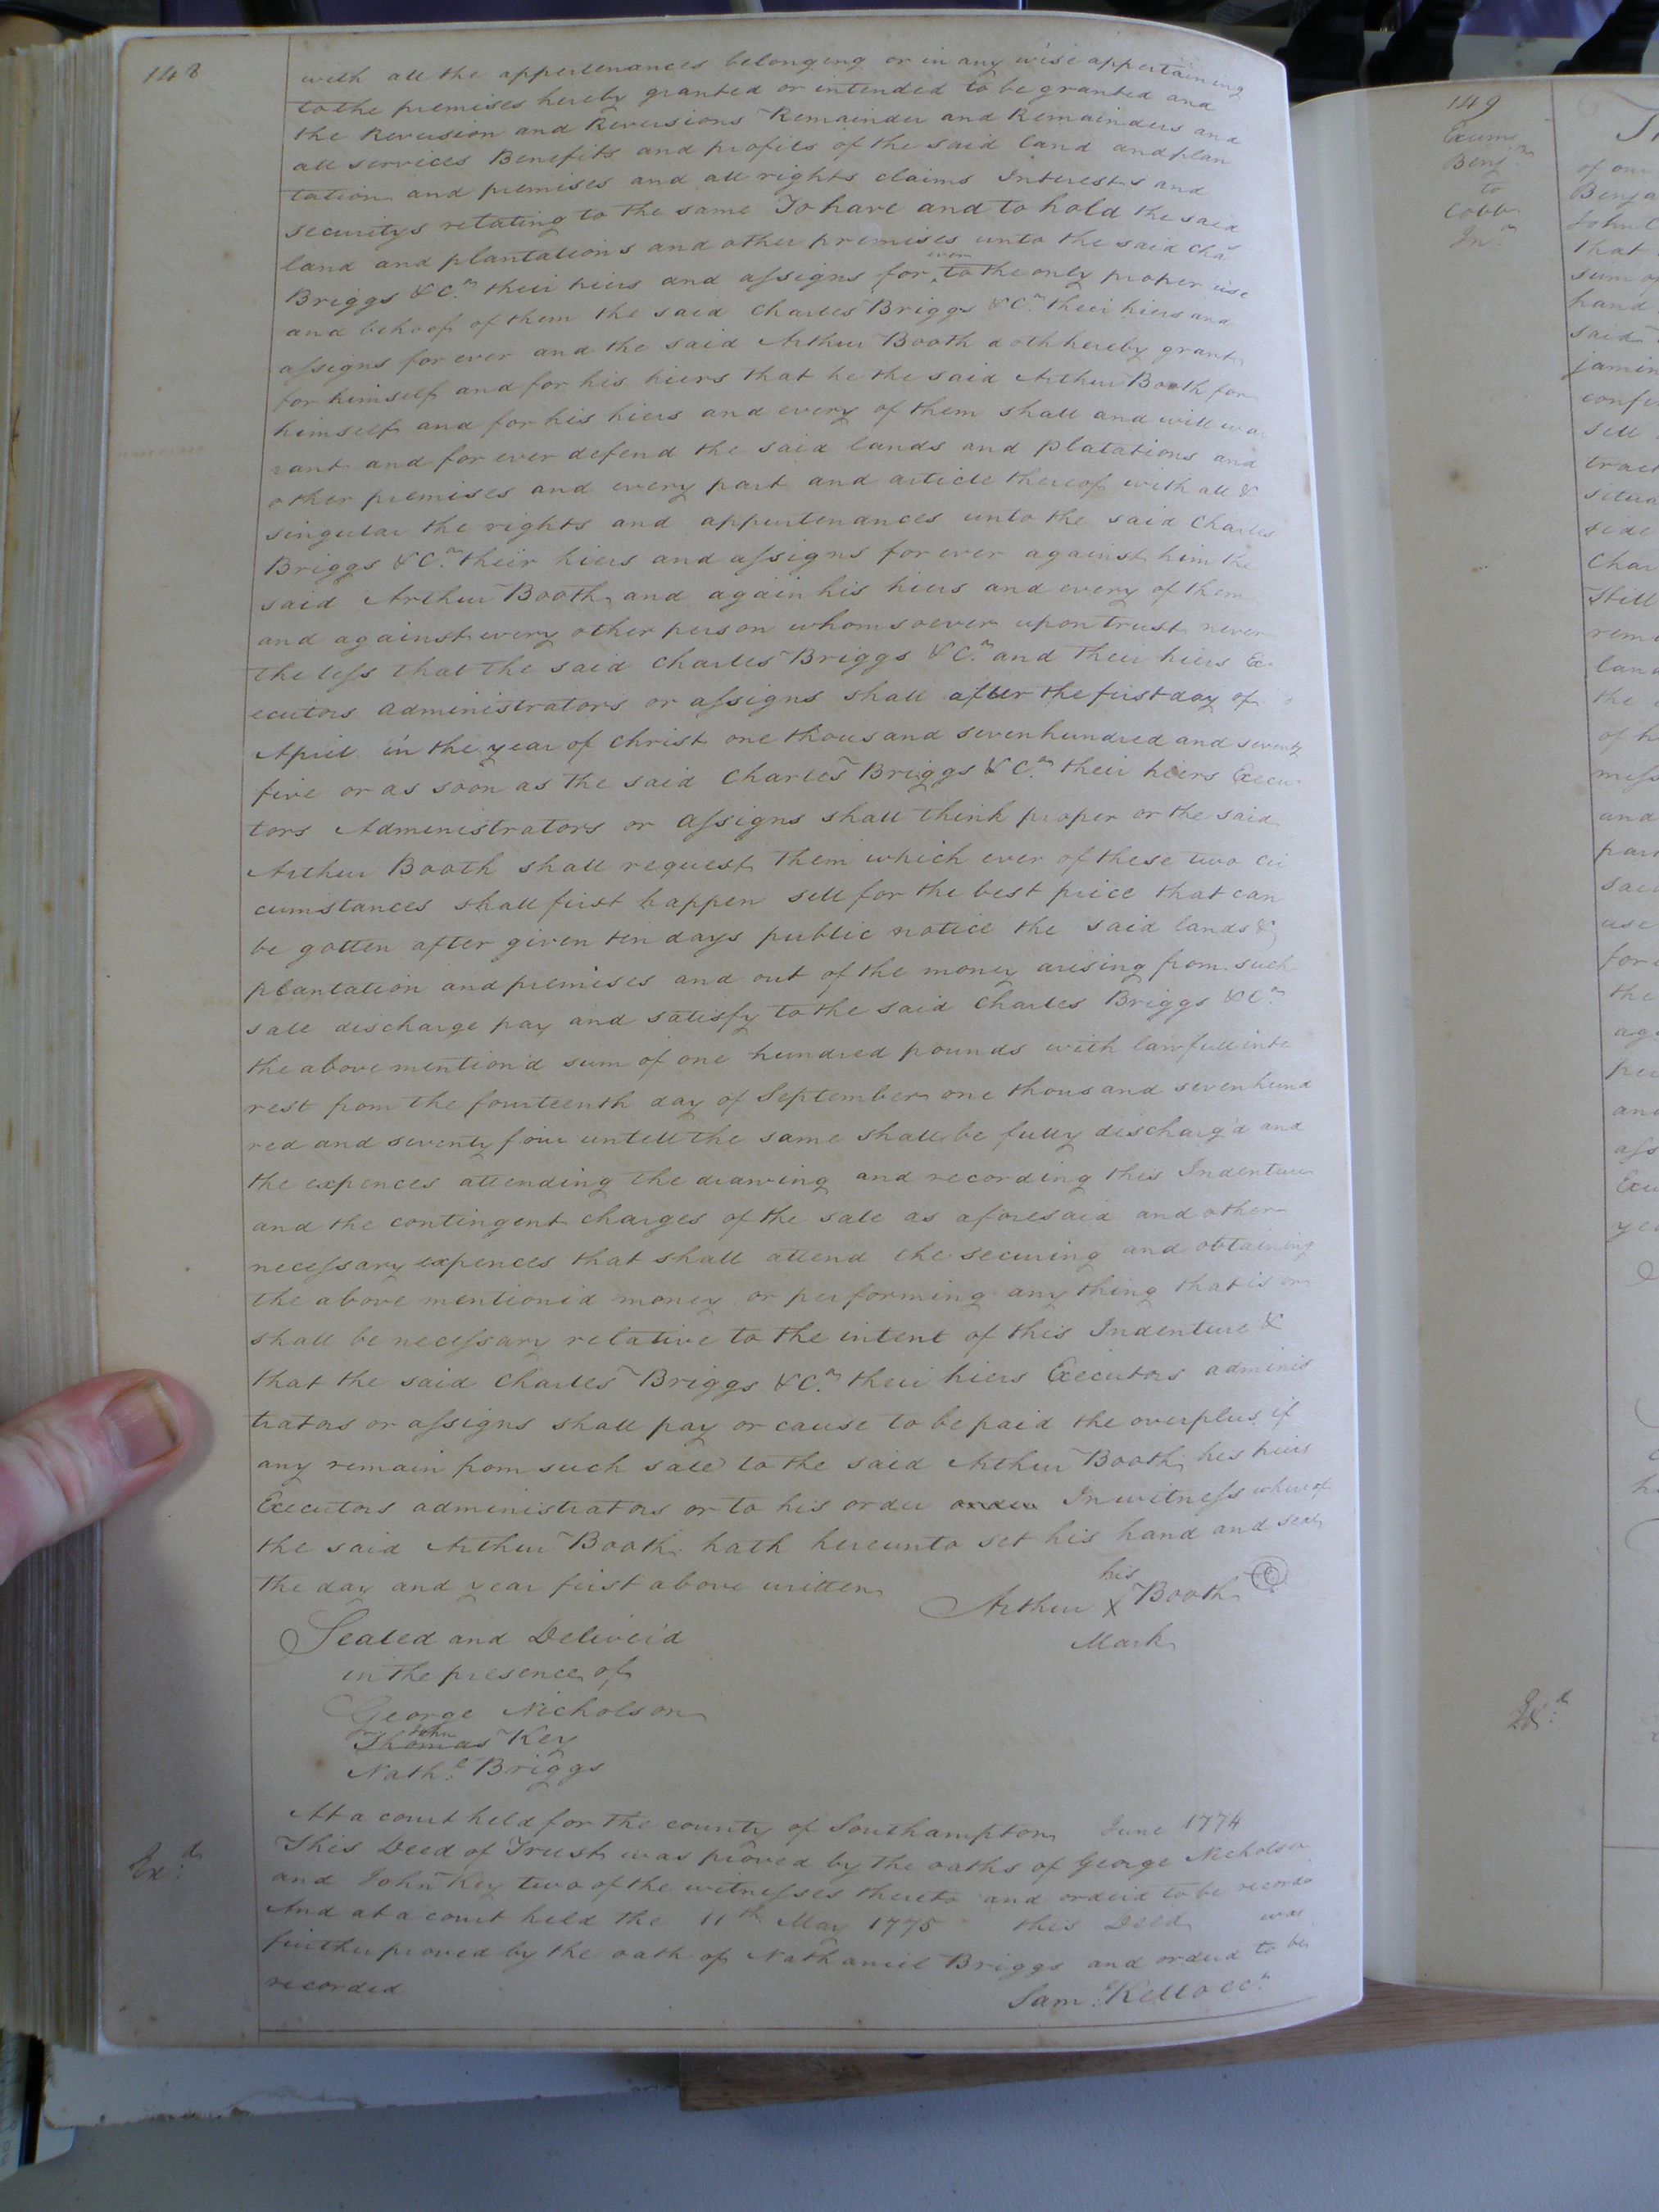 148
with all the appertenances belonging or in any wise appertaining
to the premises hereby granted or intended to be granted and
the Reversion and Reversions Remainder and Remainders and
all services Benefits and profits of the said land and plan
tation and premises and all rights claims Interests and
securitys relating to the same To have and to hold the said
land and plantations and other premises unto the said Chas
Briggs & Co. their hiers and assigns for ever to the only proper use
and behoof of them the said Charles Briggs & Co. their hiers and
assigns for ever and the said Arthur Booth doth hereby grant
for himself and for his hiers that he the said Arthur Booth for
himself and for his hiers and every of them shall and will war
rant and for ever defend the said lands and platations and
other premises and every part and article thereof with all &
singular the rights and appurtenances unto the said Charles
Briggs & Co. their hiers and assigns for ever against him the
said Arthur Booth and again his hiers and every of them
and against every other person whomsoever upon trust never
the less that the said Charles Briggs & Co. and their hiers Ex
ecutors administrators or assigns shall after the first day of
April in the year of Christ one thousand seven hundred and seventy
five or as soon as the said Charles Briggs & Co. their hiers Execu
tors Administrators or assigns shall think proper or the said
Arthur Booth shall request them which ever of these two cir
cumstances shall first happen sell for the best price that can
be gotten after given ten days public notice the said lands &
plantation and premises and out of the money arising from such
sale discharge pay and satisfy to the said Charles Briggs & Co.
the above mention'd sum of one hundred pounds with lawfull inte
rest from the fourteenth day of September one thousand seven hund
red and seventy four untill the same shall be fully discharg'd and
the expences attending the drawing and recording this Indenture
and the contingent charges of the sale as aforesaid and other
necessary expences that shall attend the securing and obtaining
the above mentioned money or performing any thing that is or
shall be necessary relative to the intent of this Indenture &
that the said Charles Briggs & Co. their hiers Executors adminis
trators or assigns shall pay or cause to be paid the overplus if
any remain from such sale to the said Arthur Booth his hiers
Executors administrators or to his order order In witness whereof
the said Arthur Booth hath hereunto set his hand and seal
the day and year first above written
his
Arthur X Booth
Mark
Sealed and Deliver'd
in the presence of
George Nicholson
Thomas John Key
Nathl. Briggs
At a court held for the county of Southampton June 1774
This Deed of Trust was proved by the oaths of George Nicholson
and John Key two of the witnesses thereto and order'd to be record
And at a court held the 11th May 1775 this Deed was
further proved by the oath of Nathaniel Briggs and orderd to be
recorded
Sam. Kello CC.
Exd.
149
Exum
Benjn
to
Cobb
Jnr
of our
Benja
John C
that
sum of
hand
said
jamin
confir
sell
tract
situa
side
Char
Still
rema
land
the
of h
miss
and
part
said
use
for e
the
aga
per
and
ass
Exe
yea
Exd.